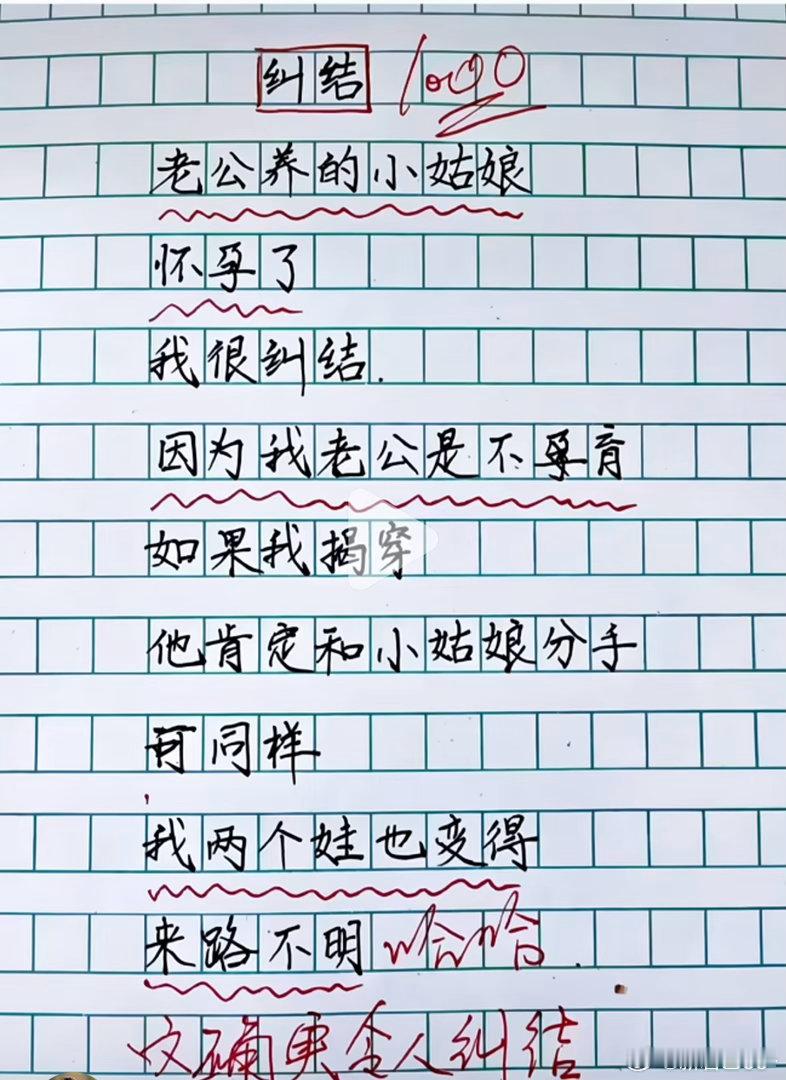 纠结 100
老公养的小姑娘
怀孕了
我很纠结.
因为我老公是不孕育
如果我揭穿
他肯定和小姑娘分手
可同样
我两个娃也变得
来路不明 哈哈.
确实令人纠结